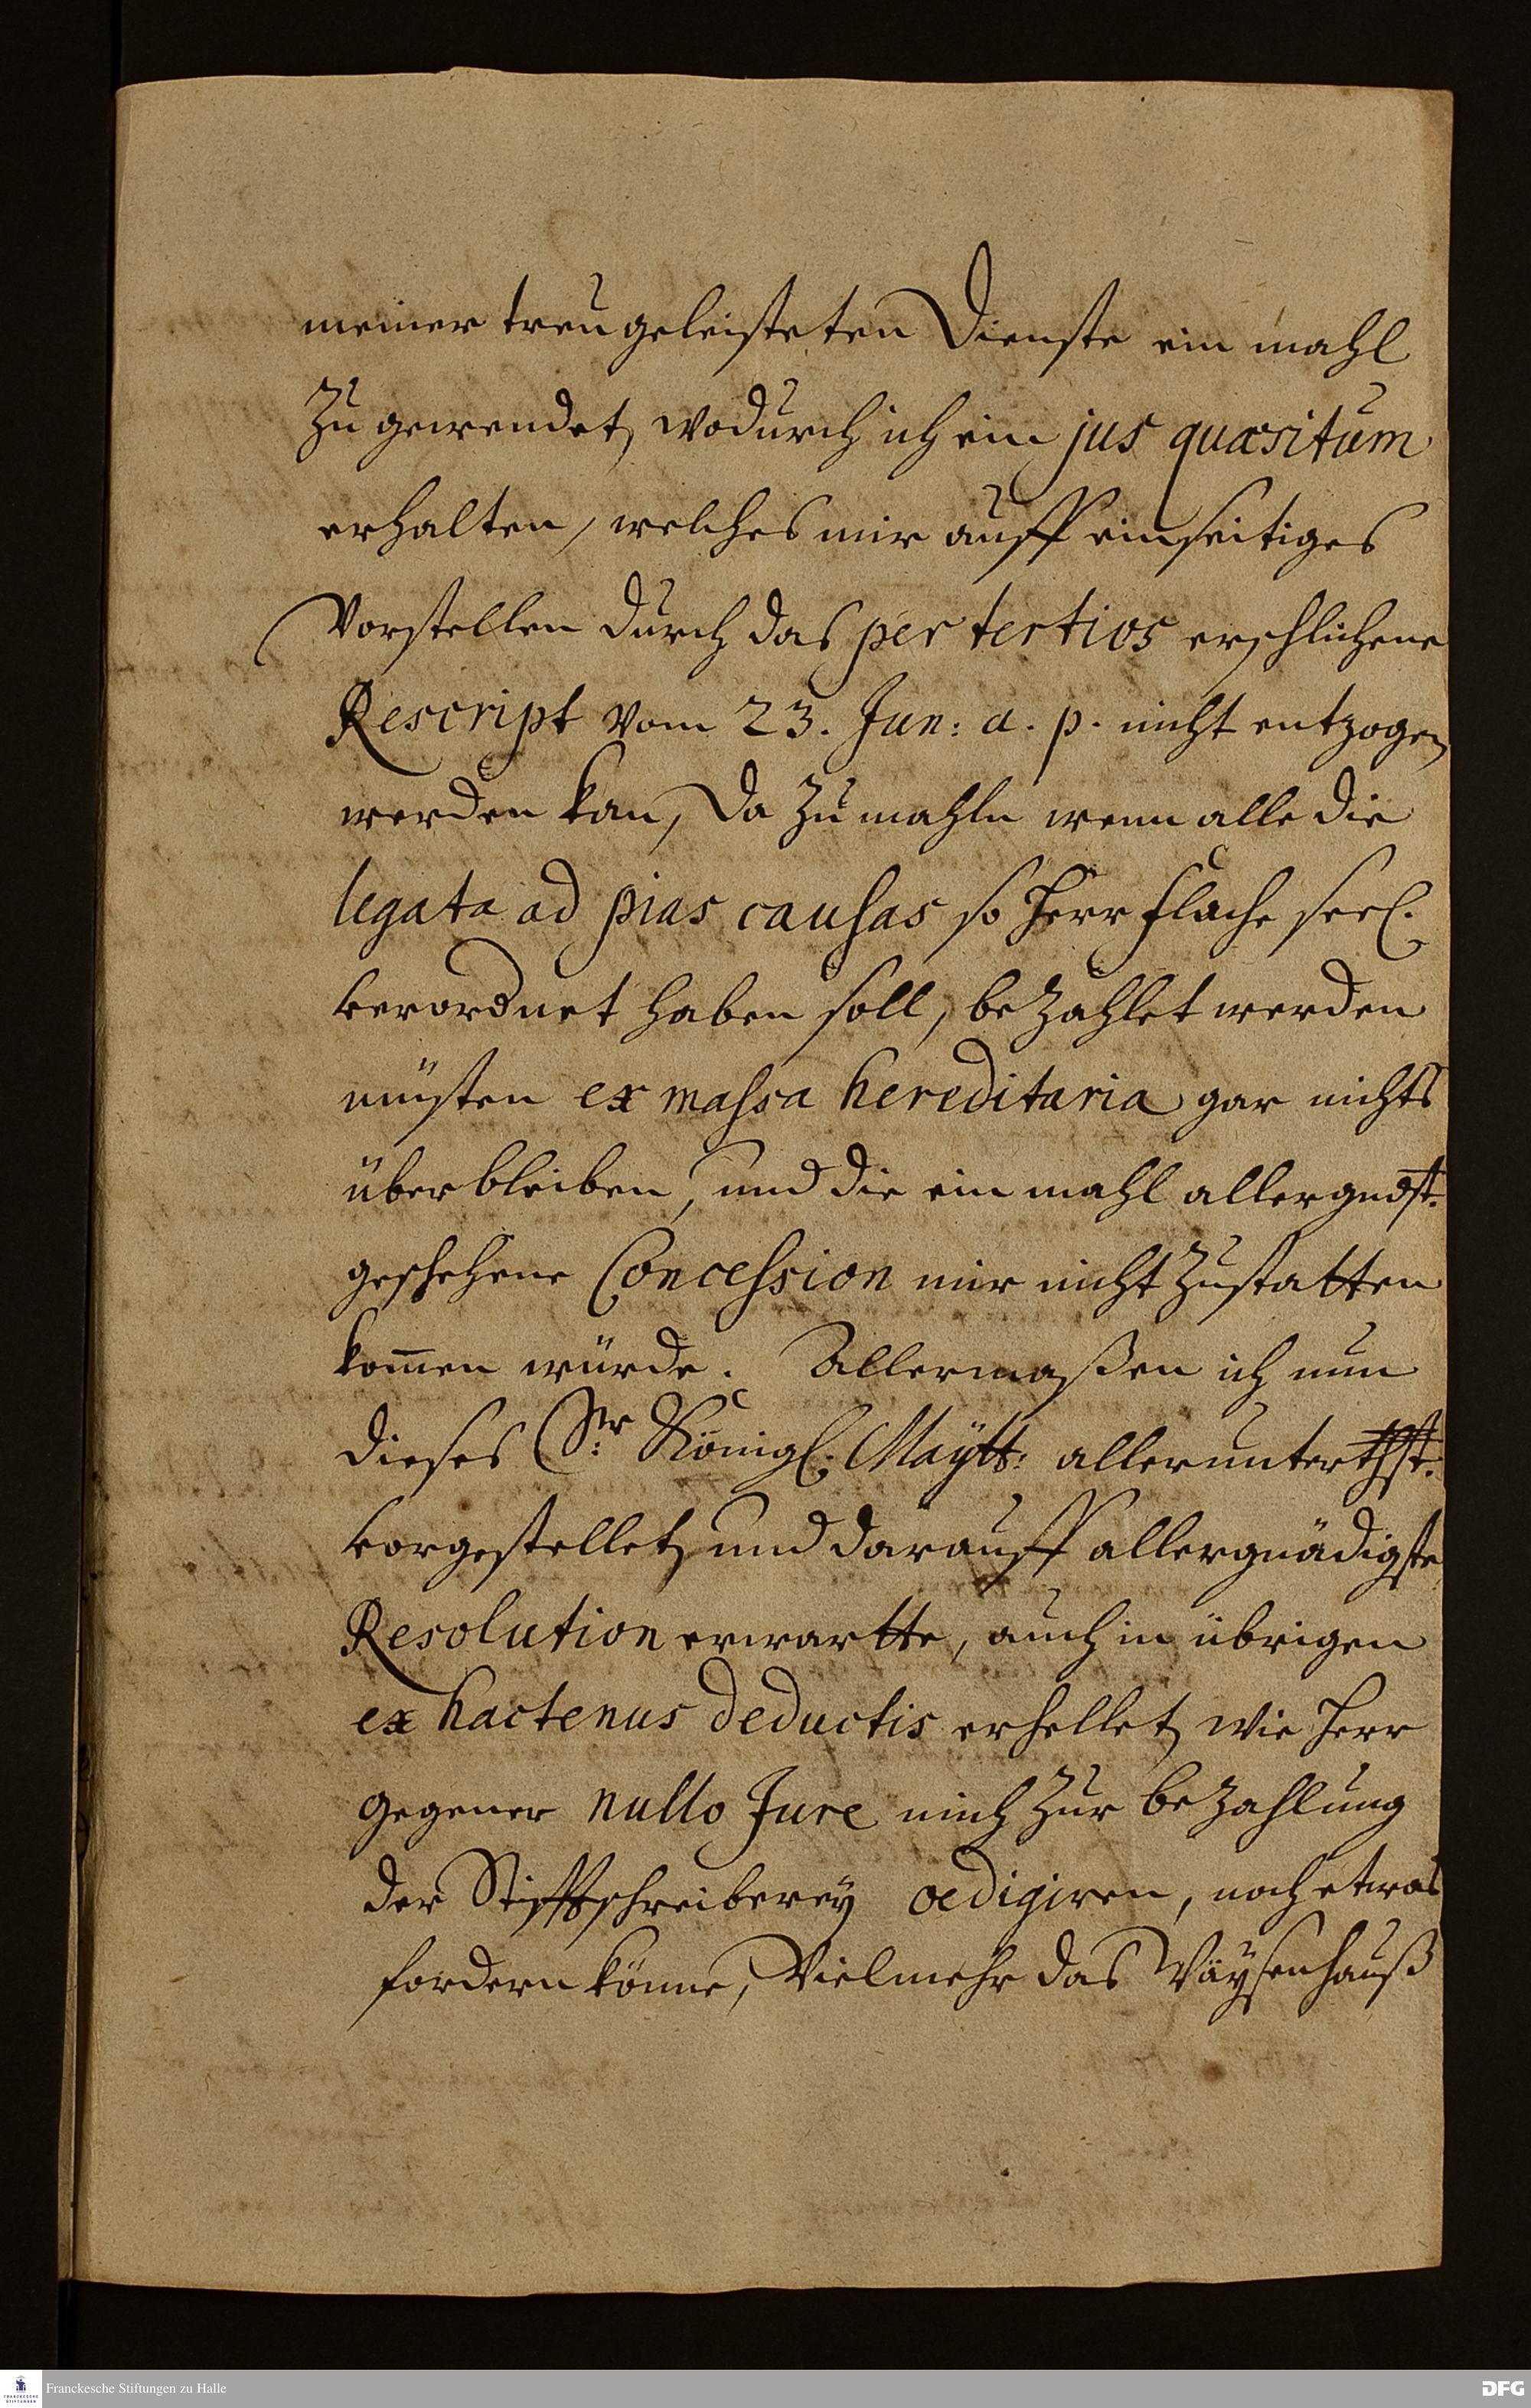 meiner treu geleisteten Dienste ein mahl
zu gewendet, wodurch ich ein jus quæsitum
erhalten, welches mir auff einseitiges
Vorstellen durch das per tertios erschlichene
Rescript vom 23. Jun: a. p. nicht entzogen
werden kan, Da zu mahln wenn alle die
legata ad pias causas so Herr Flache seel.
verordnet haben soll, bezahlet werden
müsten ex massa hereditaria gar nichts
über bleiben, und die ein mahl allergndst.
geschehene Concession mir nicht zustatten
kom̅en würde. Allermaßen ich nun
dieses Sr: Königl. Maÿtt: allerunterthst.
vorgestellet, und darauff allergnädigste
Resolution erwartte, auch in übrigen
ex hactenus deductis erhellet, wie Herr
Gegener nullo Jure mich zur bezahlung
der Stifftschreiberey, noch etwas
fordern könne, Vielmehr das Wäysenhauß
Franckesche Stiftungen zu Halle
DFG